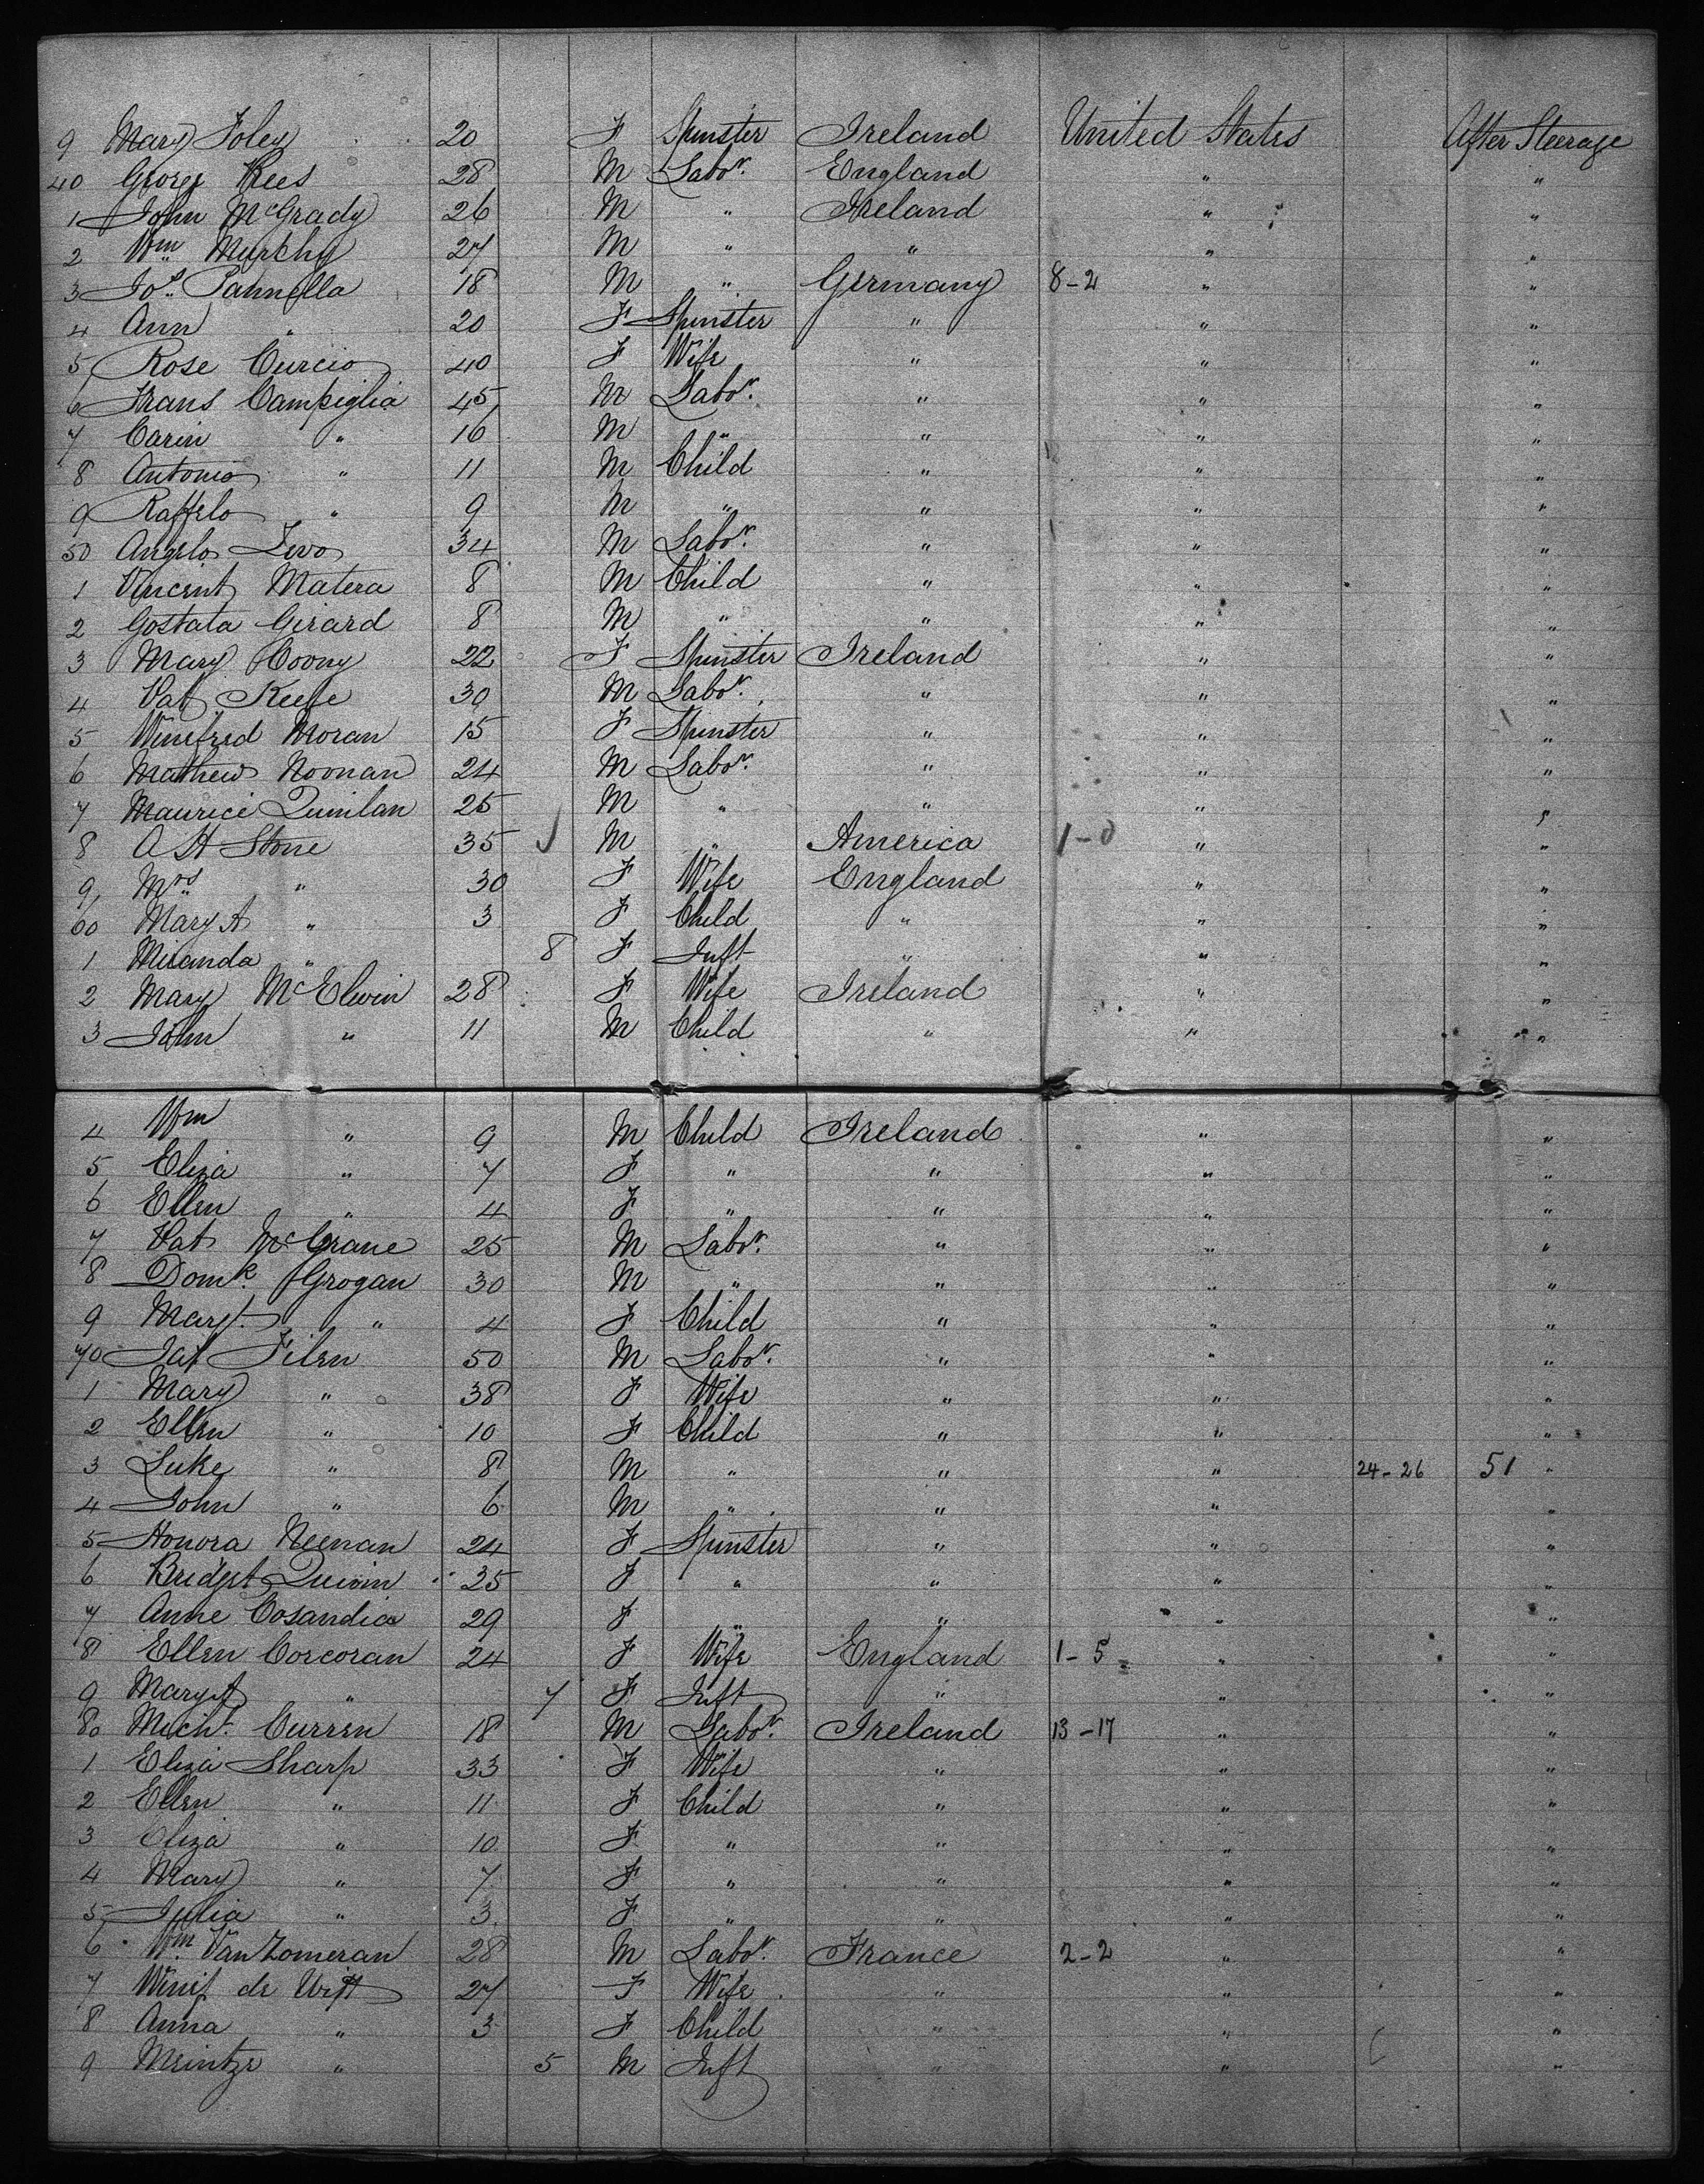 9 Mary Foley 20 F Spinster Ireland United States After Steerage
40 George Rees 28 M Labor. England " "
1 John McGrady 26 M " Ireland " "
2 Wm Murphy 27 M " " " "
3 Jos. Pannella 18 M " Germany 8-2 " "
4 Ann " 20 F Spinster " " "
5 Rose Curcio 40 F Wife " " "
6 Frans Campiglia 45 M Labor. " " "
7 Carin " 16 M " " " "
8 Antonio " 11 M Child " " "
9 Raffelo " 9 M " " " "
50 Angelo 34 M Labor. " " "
1 Vincent Matera 8 M Child " " "
2 Gostata Girard 8 M " " " "
3 Mary Coony 22 F Spinster Ireland " "
4 Pat Keefe 30 M Labor. " " "
5 Winifred Moran 15 F Spinster " " "
6 Mathew Noonan 24 M Labor. " " "
7 Maurice Quinlan 25 M " " " "
8 A H Stone 35 M " America 1-0 " "
9 Mrs " 30 F Wife England " "
60 Mary A " 3 F Child " " "
1 Miranda " 8 F Inft " " "
2 Mary McElwin 28 F Wife Ireland " "
3 John " 11 M Child " " "
4 Wm " 9 M Child Ireland " "
5 Eliza " 7 F " " " "
6 Ellen " 4 F " " " "
7 Pat McGrane 25 M Labor. " " "
8 Domk. Grogan 30 M " " " "
9 Margt. " 4 F Child " " "
70 Filen 50 M Labor. " " "
1 Mary " 38 F Wife " " "
2 Ellen " 10 F Child " " "
3 Luke " 8 M " " " 24-26 51 "
4 John " 6 M " " " "
5 Honora Neenan 24 F Spinster " " "
6 Bridget 25 F " " " "
7 Anne Cosandica 29 F " " " "
8 Ellen Corcoran 24 F Wife England 1-5 " "
9 Mary A " 7 F Inft " " "
80 Micht. Curren 18 M Labor. Ireland 13-17 " "
1 Eliza Sharp 33 F Wife " " "
2 Ellen " 11 F Child " " "
3 Eliza " 10 F " " " "
4 Mary " 7 F " " " "
5 Julia " 3 F " " " "
6 Wm Van Zomeran 28 M Labor. France 2-2 " "
7 Winif de 27 F Wife " " "
8 Anna " 3 F Child " " "
9 Meintze " 5 M Inft " " "